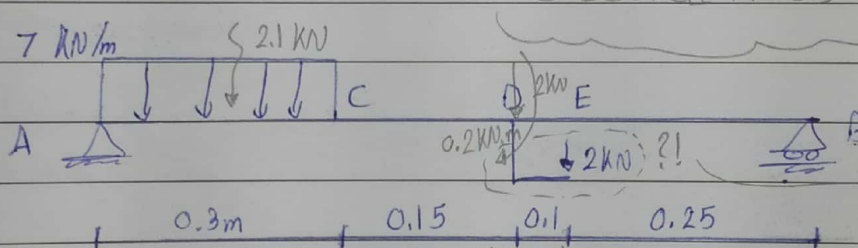 7 KN/m 2.1 KN
C D 2KN E
A 0.2KN.m 2KN ?! B
0.3m 0.15 0.1 0.25